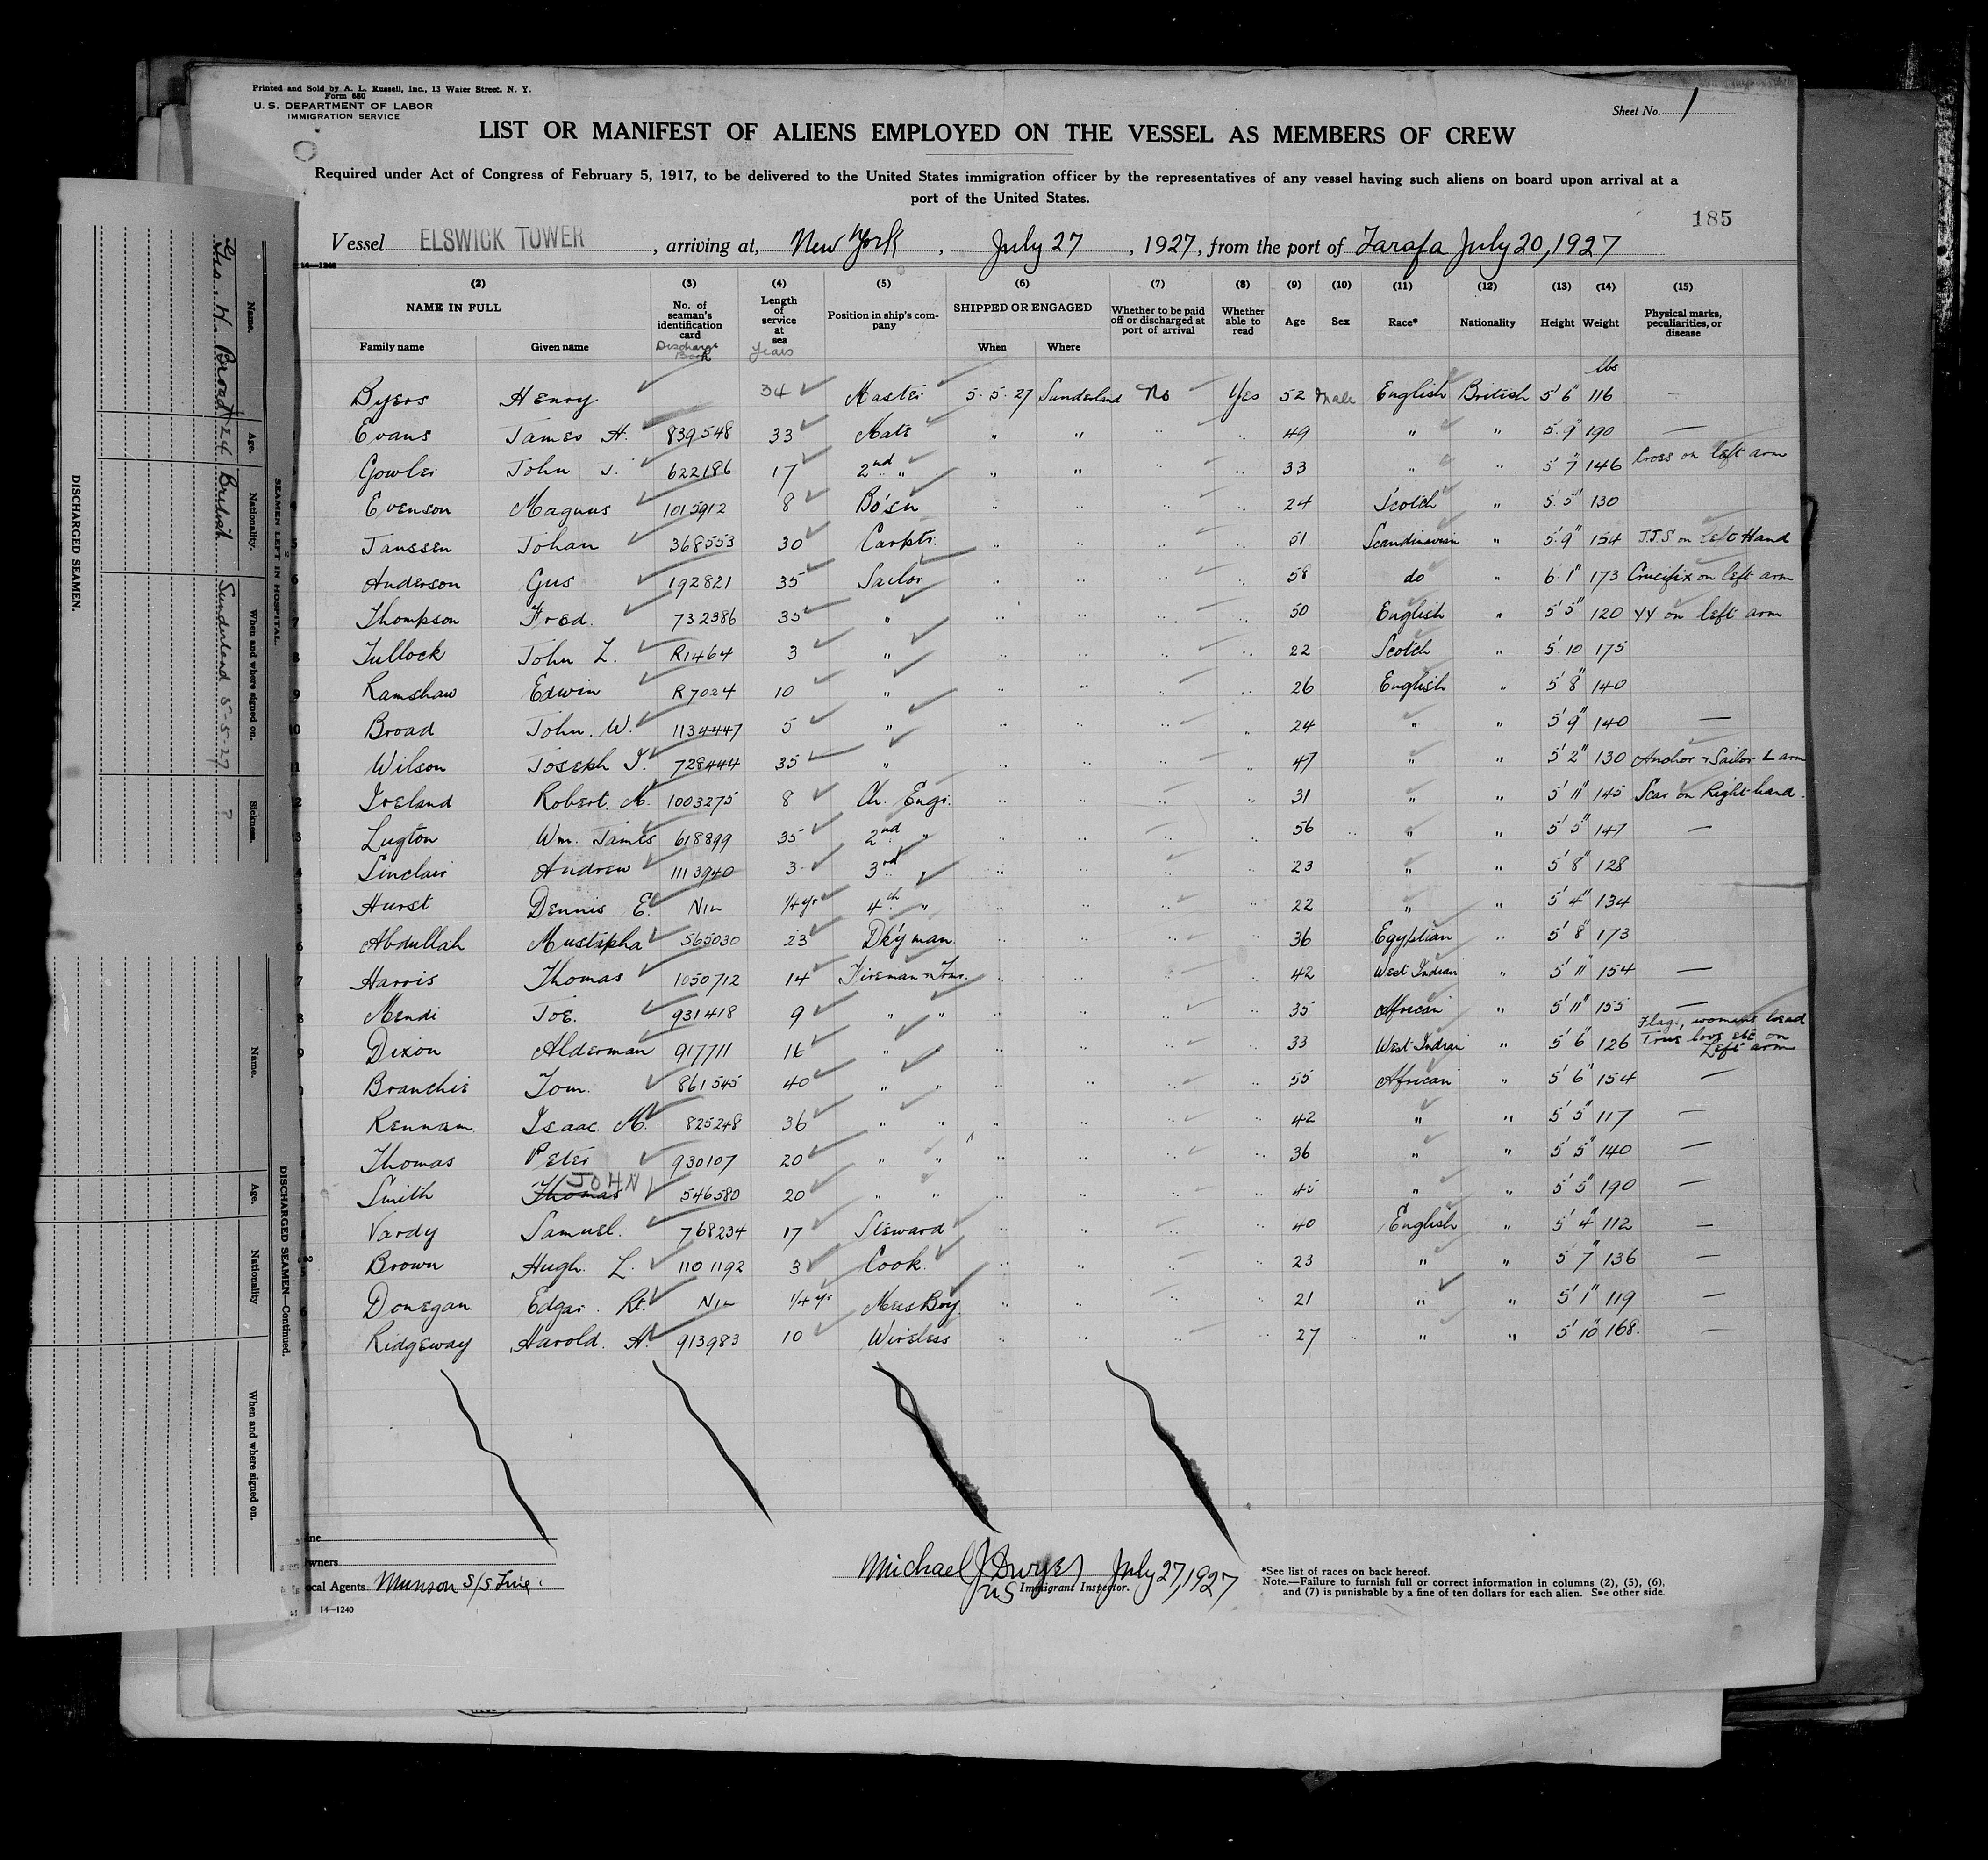 Printed and Sold by A. L. Russell, Inc., 13 Water Street, N. Y.
Form 680
U. S. DEPARTMENT OF LABOR
IMMIGRATION SERVICE
Sheet No. 1
LIST OR MANIFEST OF ALIENS EMPLOYED ON THE VESSEL AS MEMBERS OF CREW
Required under Act of Congress of February 5, 1917, to be delivered to the United States immigration officer by the representatives of any vessel having such aliens on board upon arrival at a
port of the United States.
185
Vessel ELSWICK TOWER, arriving at, New York, July 27, 1927, from the port of Tarafa July 20, 1927
14—1240
(2) (3) (4) (5) (6) (7) (8) (9) (10) (11) (12) (13) (14) (15)
NAME IN FULL
Family name Given name
No. of seaman's identification card Discharge Book
Length of service at sea Years
Position in ship's company
SHIPPED OR ENGAGED
When Where
Whether to be paid off or discharged at port of arrival
Whether able to read
Age Sex Race* Nationality Height Weight
Physical marks, peculiarities, or disease
lbs
Byers Henry 34 Master 5.5.27 Sunderland No Yes 52 Male English British 5' 6" 116 —
Evans James H. 839548 33 Mate " " " " 49 " " 5' 9" 190 —
Gowler John J. 622186 17 2nd " " " " " 33 " " 5' 7" 146 Cross on left arm
Evenson Magnus 1015912 8 Bo'sn " " " " 24 Scotch " 5' 5" 130
Janssen Johan 368553 30 Carptr. " " " " 51 Scandinavian " 5' 9" 154 J.J.S on left Hand
Anderson Gus 192821 35 Sailor " " " " 58 do " 6' 1" 173 Crucifix on left arm
Thompson Fred. 732386 35 " " " " " 50 English " 5' 5" 120 YY on left arm
Tullock John L. R1464 3 " " " " " 22 Scotch " 5' 10 175
Ramshaw Edwin R7024 10 " " " " " 26 English " 5' 8" 140
Broad John. W. 1134447 5 " " " " " 24 " " 5' 9" 140 —
Wilson Joseph T. 728444 35 " " " " " 47 " " 5' 2" 130 Anchor & Sailor L arm
Ireland Robert. M. 1003275 8 Ch. Engr. " " " " 31 " " 5' 11" 145 Scar on Right hand.
Lugton Wm. James 618899 35 2nd " " " " " 56 " " 5' 5" 147 —
Sinclair Andrew 1113940 3 3rd " " " " " 23 " " 5' 8" 128
Hurst Dennis E. Nil 1/4 yr 4th " " " " " 22 " " 5' 4" 134
Abdullah Mustapha 565030 23 Dky man " " " " 36 Egyptian " 5' 8" 173
Harris Thomas 1050712 14 Fireman & Trmr. " " " " 42 West Indian " 5' 11" 154 —
Mendi Joe. 931418 9 " " " " " " 35 African " 5' 11" 155 —
Dixon Alderman 917711 16 " " " " " " 33 West Indian " 5' 6" 126 Flags, womans head True love etc on Left arm
Branchie Tom. 861545 40 " " " " " " 55 African " 5' 6" 154 —
Rennam Isaac. M. 825248 36 " " " " " " 42 " " 5' 5" 117 —
Thomas Peter 930107 20 " " " " " " 36 " " 5' 5" 140 —
Smith Thomas JOHN 546580 20 " " " " " " 45 " " 5' 5" 190 —
Vardy Samuel. 768234 17 Steward " " " " 40 English " 5' 4" 112 —
Brown Hugh. L. 1101192 3 Cook " " " " 23 " " 5' 7" 136 —
Donegan Edgar. Rt. Nil 1/4 yr Mess Boy " " " " 21 " " 5' 1" 119 —
Ridgeway Harold. H. 913983 10 Wireless " " " " 27 " " 5' 10" 168. —
Local Agents Munson S/S Line
14—1240
Michael J Dwyer July 27, 1927
US Immigrant Inspector.
*See list of races on back hereof.
Note.—Failure to furnish full or correct information in columns (2), (5), (6),
and (7) is punishable by a fine of ten dollars for each alien. See other side.
DISCHARGED SEAMEN.
SEAMEN LEFT IN HOSPITAL.
Name. Age. Nationality. When and where signed on. Sickness.
Geo. W. Broad 24 British Sunderland 5-5-27 ?
DISCHARGED SEAMEN—Continued.
Name. Age. Nationality When and where signed on.